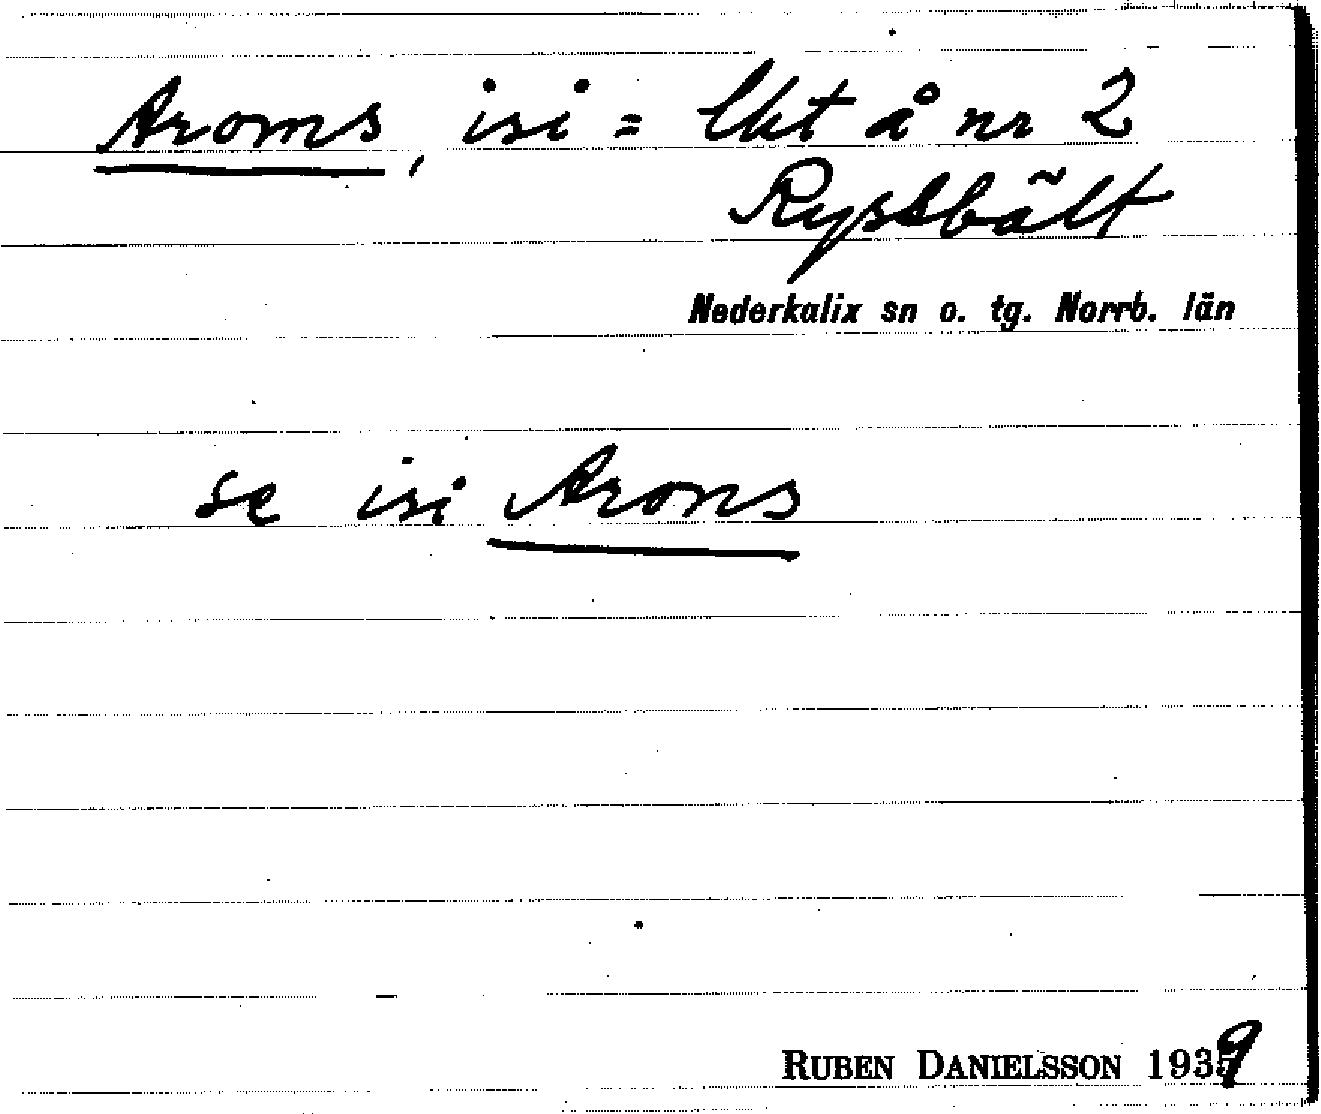 Aroms, isi = lht å nr 2
Ryssbält
Nederkalix sn o. tg. Norrb. län
se isi Arons
RUBEN DANIELSSON 1939